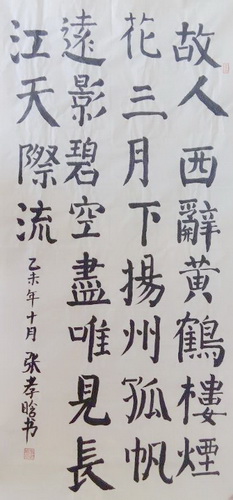 故人西辭黄鶴樓煙
花三月下揚州孤帆
遠影碧空盡唯見長
江天際流
乙未年十月 张孝晗书